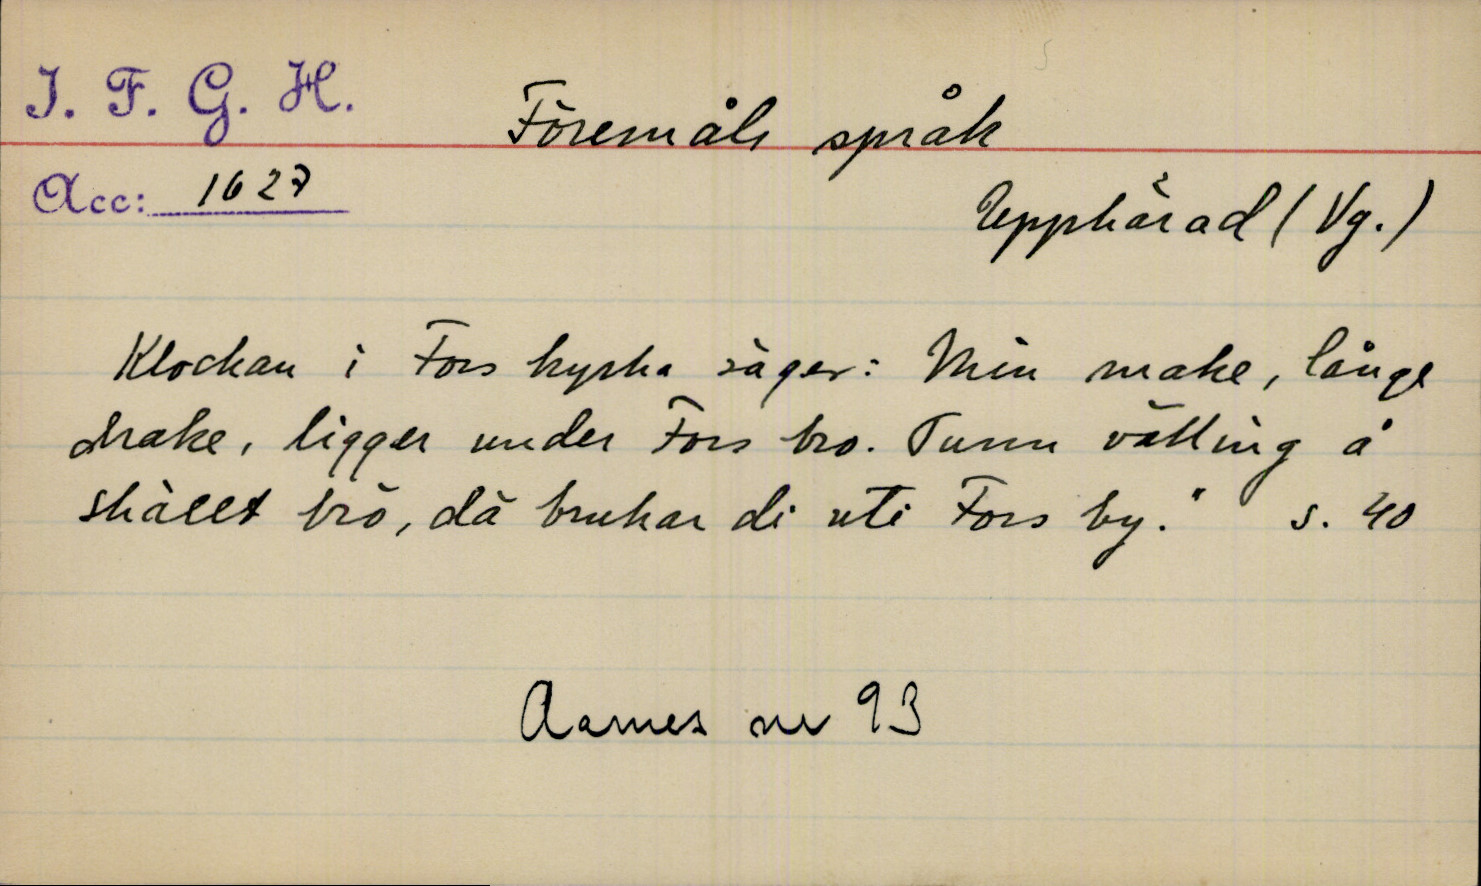 I. F. G. H.
Föremåls språk
Acc: 1627
Upphärad (Vg.)
Klockan i Fors kyrka säger: Min make, långe
drake, ligger under Fors bro. Tunn välling å
skållt brö, dä brukar di uti Fors by." s. 40
Aarnes nr 93